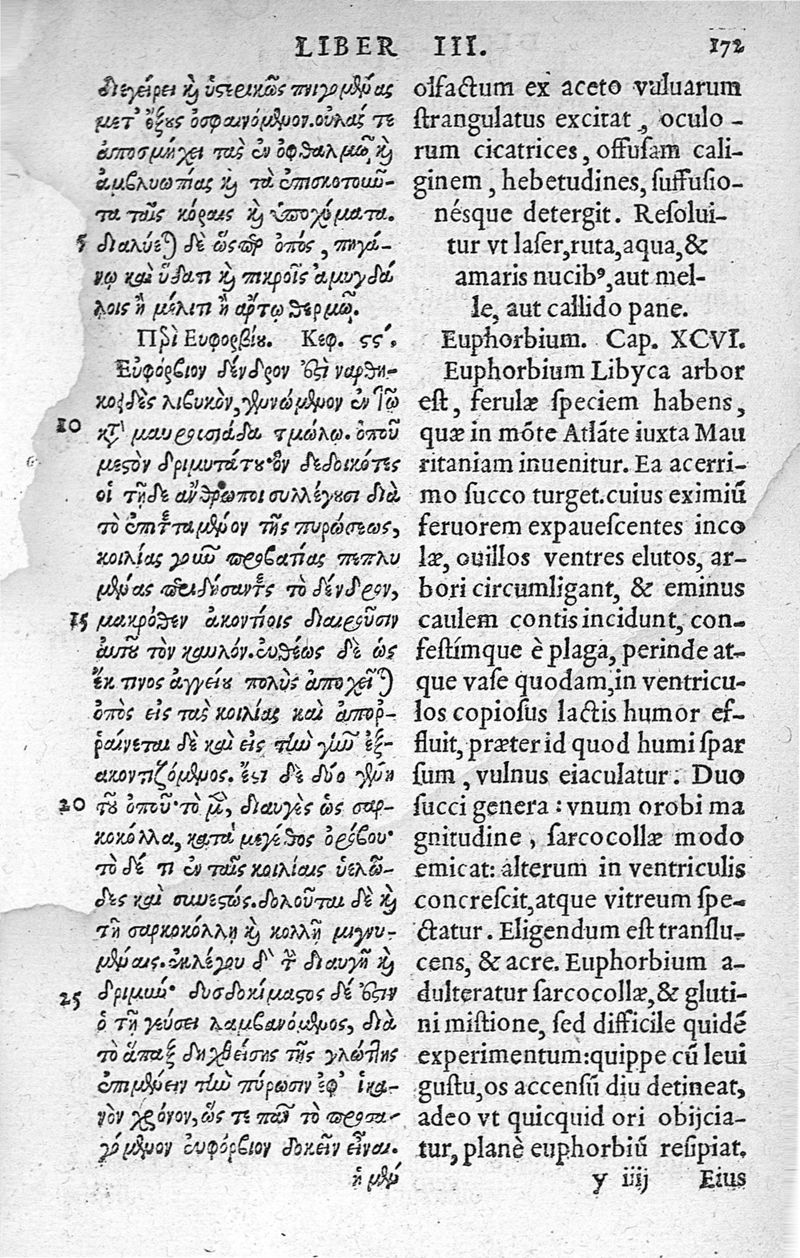 LIBER III. 172
διεγείρει κ̀ ὑστερικῶς πνιγομένας
μετ' ὄξους ὀσφραινόμενον. οὐλάς τε
ἀποσμήχει τὰς ἐν ὀφθαλμῷ, κ̀
ἀμβλυωπίας κ̀ τὰ ἐπισκοτοῦν-
τα ταῖς κόραις κ̀ ὑποχύματα.
5 διαλύεται δὲ ὥσπερ ὀπός, πηγά-
νῳ καὶ ὕδατι κ̀ πικροῖς ἀμυγδά
λοις ἢ μέλιτι ἢ ἄρτῳ θερμῷ.
Περὶ Ευφορβίου. Κεφ. ϛϛ΄.
Εὐφόρβιον δένδρον ἐστὶ ναρθη-
κοειδὲς λιβυκὸν, γεννώμενον ἐν τῷ
10 κατὰ μαυρουσιάδα τμώλῳ. ὀποῦ
μεστὸν δριμυτάτου· ὃν δεδοικότες
οἱ τῇδε ἄνθρωποι συλλέγουσι διὰ
τὸ ἐπιτεταμένον τῆς πυρώσεως,
κοιλίας γοῦν προβατίας πεπλυ
μένας περιδήσαντες τὸ δένδρον,
15 μακρόθεν ἀκοντίοις διαιροῦσιν
αὐτοῦ τὸν καυλόν. εὐθέως δὲ ὡς
ἔκ τινος ἀγγείου πολὺς ἀποχεῖται
ὀπὸς εἰς τὰς κοιλίας καὶ ἀποῤ-
ῥαίνεται δὲ καὶ εἰς τὴν γῆν ἐξ-
ακοντιζόμενος. ἔστι δὲ δύο γένη
20 τοῦ ὀποῦ· τὸ μὲν, διαυγὲς ὡς σαρ-
κοκόλλα, κατὰ μέγεθος ὀρόβου·
τὸ δέ τι ἐν ταῖς κοιλίαις ὑελῶ-
δες καὶ συνεστώς. δολοῦται δὲ κ̀
τῇ σαρκοκόλλῃ κ̀ κολλῇ μιγνυ-
μέναις. ἐκλέγου δὲ τὸ διαυγῆ κ̀
25 δριμύν· δυσδοκίμαστος δέ ἐστιν
ὁ τῇ γεύσει λαμβανόμενος, διὰ
τὸ ἅπαξ δηχθείσης τῆς γλώττης
ἐπιμένειν τὴν πύρωσιν ἐφ' ἱκα-
νὸν χρόνον, ὥς τε πᾶν τὸ προσα-
γόμενον εὐφόρβιον δοκεῖν εἶναι.
ἡ μὲν
olfactum ex aceto vuluarum
strangulatus excitat, oculo -
rum cicatrices, offusam cali-
ginem, hebetudines, suffusio-
nésque detergit. Resolui-
tur vt laser,ruta,aqua,&
amaris nucibꝰ,aut mel-
le, aut callido pane.
Euphorbium. Cap. XCVI.
Euphorbium Libyca arbor
est, ferulæ speciem habens,
quæ in mõte Atlãte iuxta Mau
ritaniam inuenitur. Ea acerri-
mo succo turget.cuius eximiũ
feruorem expauescentes inco
læ, ouillos ventres elutos, ar-
bori circumligant, & eminus
caulem contis incidunt, con-
festímque è plaga, perinde at-
que vase quodam,in ventricu-
los copiosus lactis humor ef-
fluit, præter id quod humi spar
sum, vulnus eiaculatur. Duo
succi genera : vnum orobi ma
gnitudine, sarcocollæ modo
emicat: alterum in ventriculis
concrescit,atque vitreum spe-
ctatur. Eligendum est translu-
cens, & acre. Euphorbium a-
dulteratur sarcocollæ,& gluti-
ni mistione, sed difficile quidẽ
experimentum:quippe cũ leui
gustu,os accensũ diu detineat,
adeo vt quicquid ori obijcia-
tur, planè euphorbiũ resipiat.
y iiij Eius